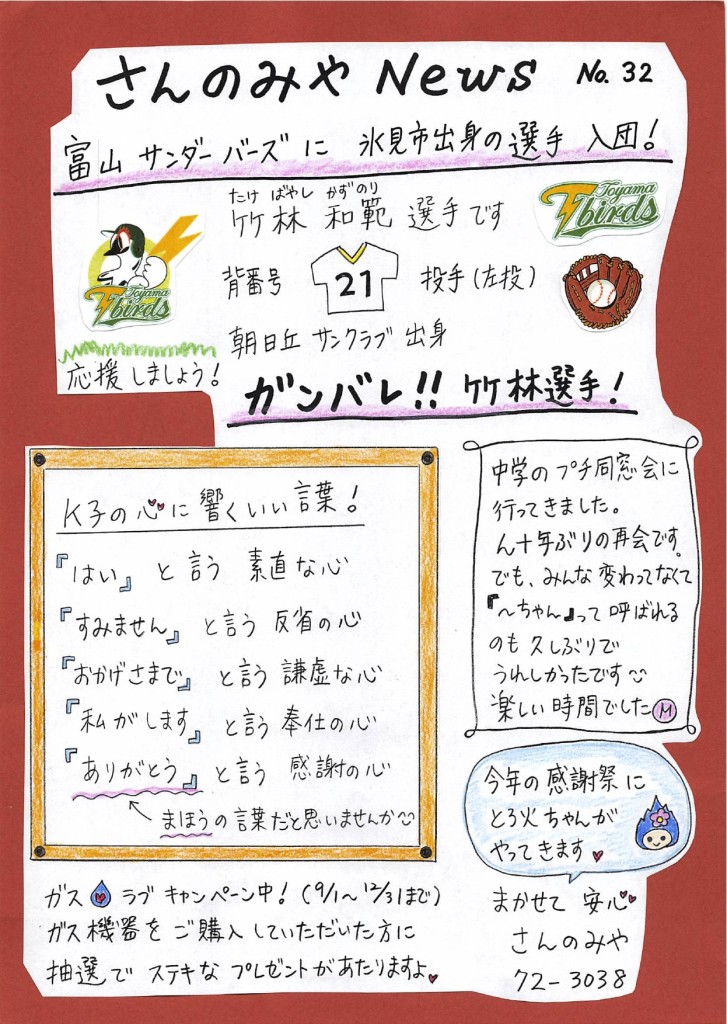 さんのみや News No. 32
富山 サンダーバーズに 氷見市出身の選手 入団!
たけ ばやし かずのり
竹林 和範 選手です
Toyama
Tbirds
Toyama
Tbirds
背番号 21 投手(左投)
朝日丘 サンクラブ 出身
応援しましょう!
ガンバレ!! 竹林選手!
K子の心に響くいい言葉!
『はい』と言う 素直な心
『すみません』と言う 反省の心
『おかげさまで』と言う 謙虚な心
『私がします』と言う 奉仕の心
『ありがとう』と言う 感謝の心
まほうの言葉だと思いませんか
中学のプチ同窓会に
行ってきました。
ん十年ぶりの再会です。
でも、みんな変わってなくて
『〜ちゃん』って呼ばれる
のも久しぶりで
うれしかったです
楽しい時間でした M
今年の感謝祭に
とろ火ちゃんが
やってきます
ガス ラブ キャンペーン中! (9/1〜12/31まで)
ガス機器をご購入していただいた方に
抽選で ステキな プレゼントがあたりますよ
まかせて 安心
さんのみや
72-3038